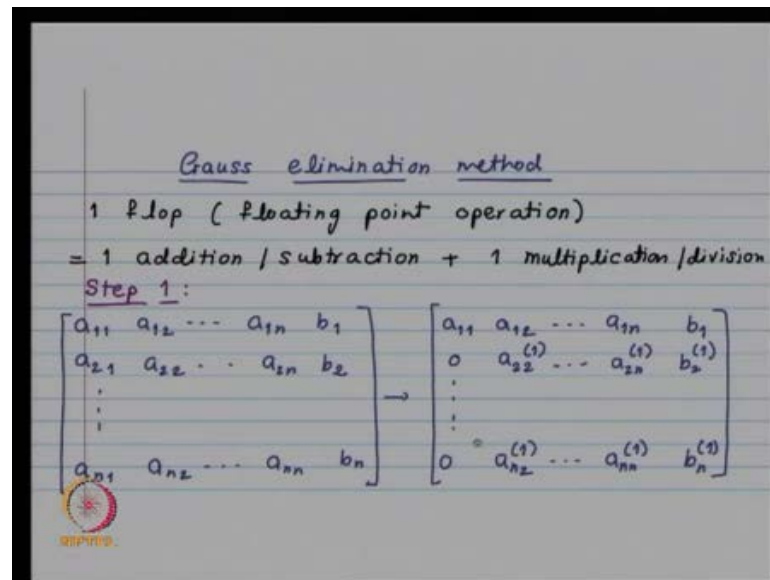 Gauss elimination method
1 flop ( floating point operation)
= 1 addition / subtraction + 1 multiplication /division
Step 1 :
[ a₁₁ a₁₂ ... a₁ₙ b₁ ] → [ a₁₁ a₁₂ ... a₁ₙ b₁ ]
[ a₂₁ a₂₂ . . a₂ₙ b₂ ] [ 0 a₂₂⁽¹⁾ ... a₂ₙ⁽¹⁾ b₂⁽¹⁾ ]
[ ⋮ ] [ ⋮ ]
[ aₙ₁ aₙ₂ ... aₙₙ bₙ ] [ 0 aₙ₂⁽¹⁾ ... aₙₙ⁽¹⁾ bₙ⁽¹⁾ ]
NPTEL